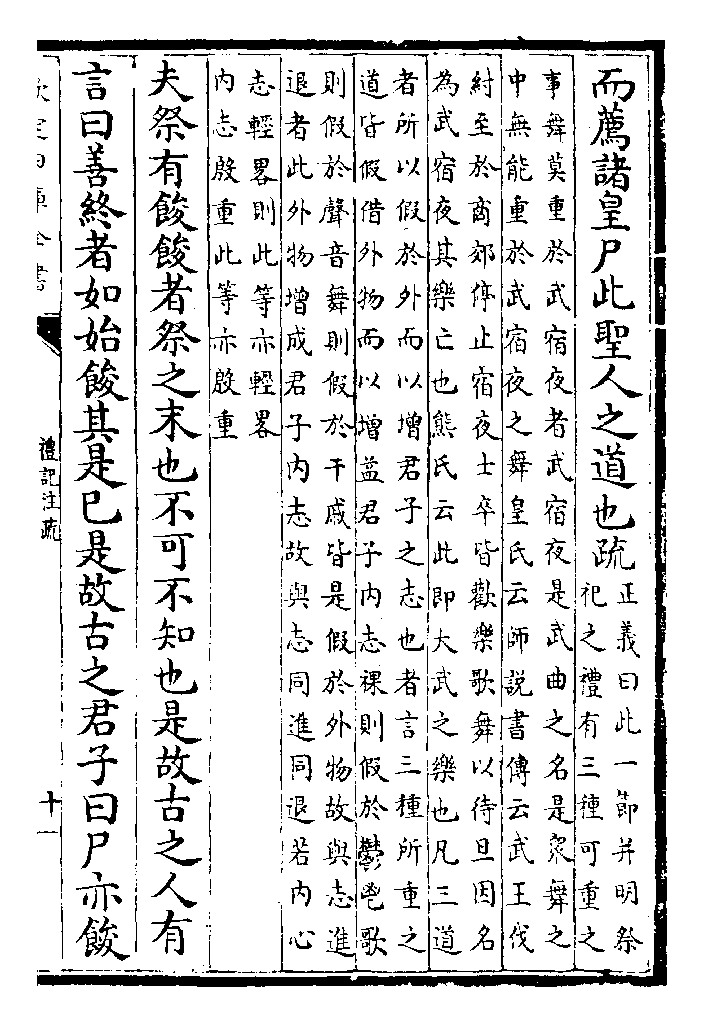 而薦諸皇尸此聖人之道也疏
正義曰此一節并明祭
祀之禮有三種可重之
事舞莫重於武宿夜者武宿夜是武曲之名是衆舞之
中無能重於武宿夜之舞皇氏云師說書傳云武王伐
紂至於商郊停止宿夜士卒皆歡樂歌舞以待旦因名
為武宿夜其樂亡也熊氏云此即大武之樂也凡三道
者所以假於外而以增君子之志也者言三種所重之
道皆假借外物而以增益君子內志祼則假於鬱鬯歌
則假於聲音舞則假於干戚皆是假於外物故與志進
退者此外物增成君子內志故與志同進同退若內心
志輕畧則此等亦輕畧
內志殷重此等亦殷重
夫祭有餕餕者祭之末也不可不知也是故古之人有
言曰善終者如始餕其是已是故古之君子曰尸亦餕
欽定四庫全書
禮記注疏
十一